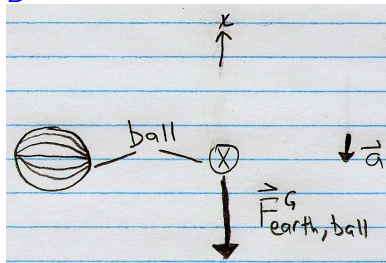 x
ball
X
a
F G earth, ball